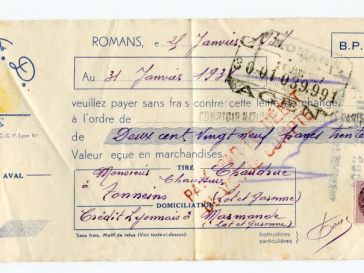 ROMANS, e 25 Janvier 1937
B.P.
Au 31 Janvier 193
30-01 039.991
veuillez payer sans frais contre cette lettre de change
à l'ordre de
COMPTOIR
C. C. P. Lyon N°
Deux cent vingt neuf francs trente
Valeur eçue en marchandises.
AVAL
TIRÉ
Monsieur Chaudruc
Chaussures
à Tonneins (Lot et Garonne)
DOMICILIATION
Crédit Lyonnais à Marmande
(Lot et Garonne)
Sans frais. Motif de refus (Voir texte ci-dessus).
Instructions
particulières